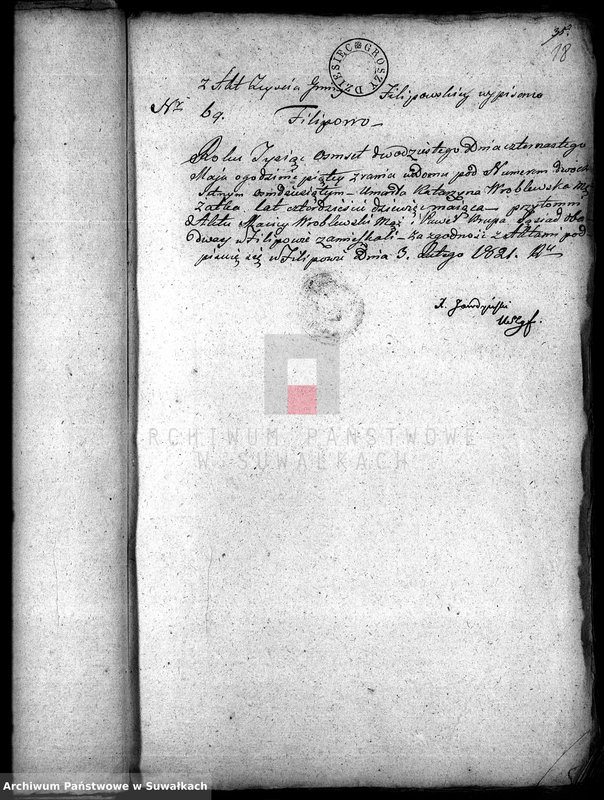 35.
18
DZIESIĘĆ GROSZY
z Akt Zeyscia Gminy Filipowskiey wypisano
Nr 69. Filipowo
Roku Tysiąc osmset dwudziestego Dnia czternastego
Maja o godzinie piątey zrana w domu pod Numerem dwóch
setnym osmdziesiątym - Umarła Katarzyna Wroblewska Mę
zatka lat czterdzieści dziewięć maiąca - przytomni
Aktu Maciey Wroblewski Mąż i Paweł Krupa Sąsiad oba
dway w Filipowie zamieszkali - Za zgodność z aktami pod
pisuię się w Filipowie Dnia 3. Lutego 1821. Ru
X.
ARCHIWUM PAŃSTWOWE
W SUWAŁKACH
Archiwum Państwowe w Suwałkach